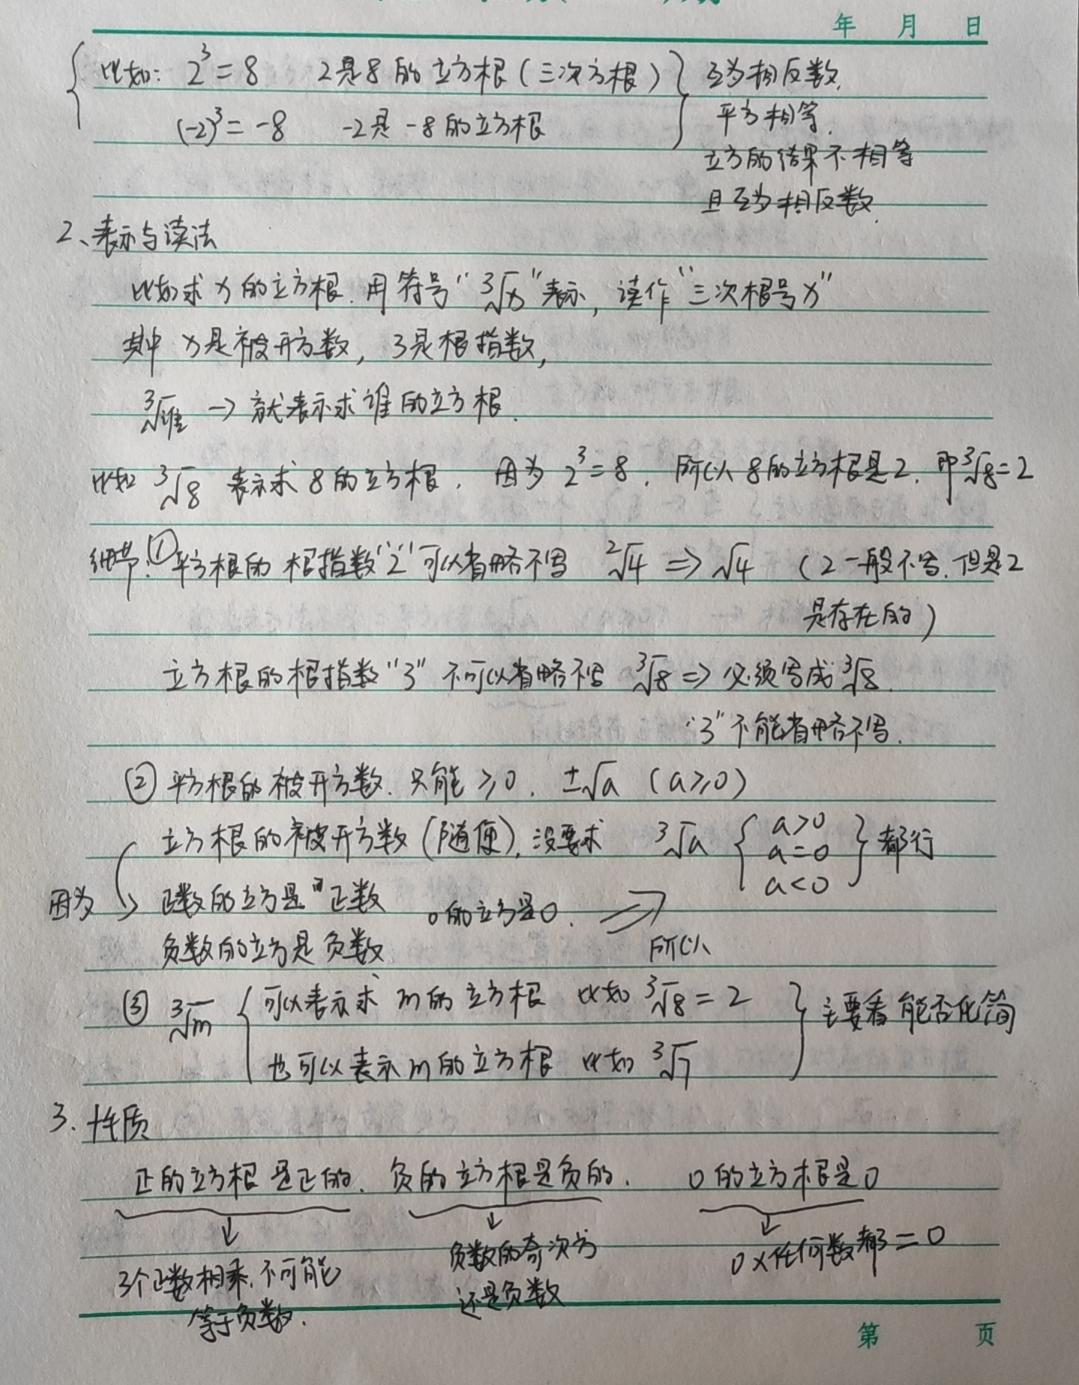 年 月 日
比如: 2³=8 2是8的立方根(三次方根) 互为相反数.
(-2)³=-8 -2是-8的立方根 平方相等.
立方的结果不相等
且互为相反数.
2、表示与读法
比如求x的立方根.用符号"∛x"表示,读作"三次根号x"
其中x是被开方数,3是根指数,
∛谁 → 就表示求谁的立方根.
比如∛8 表示求8的立方根. 因为2³=8. 所以8的立方根是2. 即∛8=2
细节:①平方根的根指数"2"可以省略不写 ²√4 ⇒ √4 (2一般不写.但是2
是存在的)
立方根的根指数"3"不可以省略不写 ∛8 ⇒ 必须写成∛8.
"3"不能省略不写.
②平方根的被开方数.只能≥0. ±√a (a≥0)
立方根的被开方数(随便),没要求 ∛a { a>0 a=0 a<0 } 都行
因为 正数的立方是正数 0的立方是0. ⇒
负数的立方是负数 所以
③ ∛m { 可以表示求m的立方根 比如∛8=2 } 主要看能否化简
也可以表示m的立方根 比如∛7
3.性质
正的立方根是正的. 负的立方根是负的. 0的立方根是0
↓ ↓ ↓
3个正数相乘.不可能 负数的奇次方 0×任何数都=0
等于负数. 还是负数
第 页